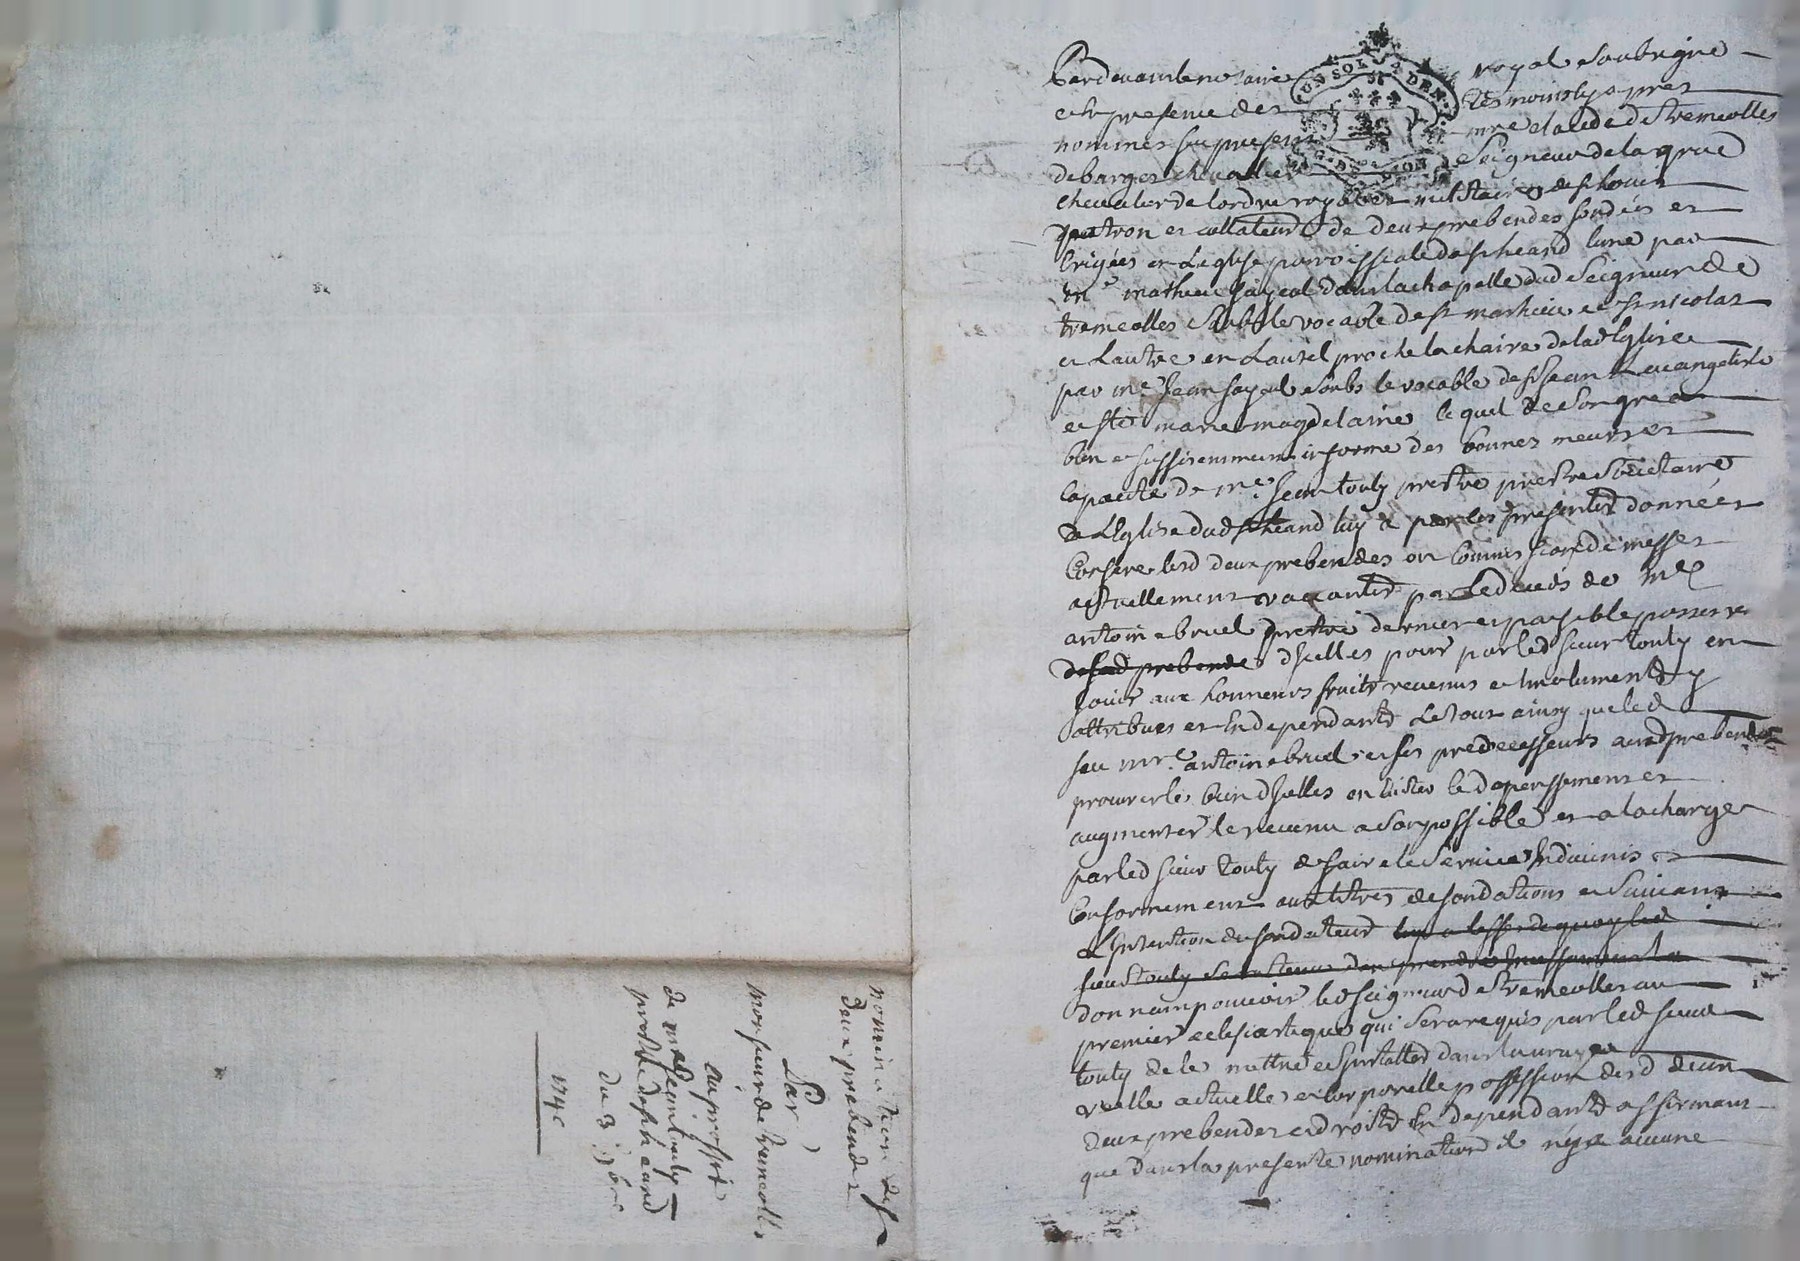 Pardevant le notaire royal soubsigné
et en presence des tesmoins bas apres
nommés fut present mre claude de tremeolles
de barges chevalier Seigneur de la grue
chevalier de lordre royal et militaire de st louis
patron et collateur de deux prebendes fondées et
Erigées en Leglise parroissiale de st heand lune par
me mathieu fayeal dans la chapelle dud Seigneur de
tremeolles soubs le vocable de st mathieu et st nicolas
et Lautre en Lautel proche la chaire de lad Eglise
par me Jean fayeul soubs le vocable de st Jean Levangeliste
et ste marie magdelaine, le quel de son gré
bien et suffisemment informe des bonnes meurs et
Capacité de me Jean touly prestre prestre societaire
de LEglise dud st heand luy a par les presentes données
Confere lesd deux prebendes ou Commissions de messes
actuellement vacantes par Led deces de me
antoine bruel prestre dernier et paysible possess.r
de lad prebende dhielles pour par led sieur touly en
Jouir aux honneurs fruits revenus et Emolumentz y
attribues et En dependants Le tout ainsy que led
feu mre antoine bruel et ses predecesseurs auxd prebendes
procurer le bien dhielles en Eviter le deperissement et
augmenter le revenu a son possible et a la charge
par led sieur touly de faire le Service Indivinis
Conformement aux titres de fondations et Suivant
LIntention du fondateur a leffet de quoy led
sieur touly
donnant pouvoir led seigneur de tremeolles au
premier eclesiastique qui sera requis par led sieur
touly de le mettre et Installer dans la vraye
reelle actuelle et Corporelle possession desd deux
deux prebendes et droits En dependants affirmant
que dans la presente nomination il ny a aucune
UN SOL 4 DEN.
G. DE LION
nomination des
deux prebendes
Par
monsieur de tremeolles
au proffit
de me Jean touly
prestre de st heand
du 3
174c